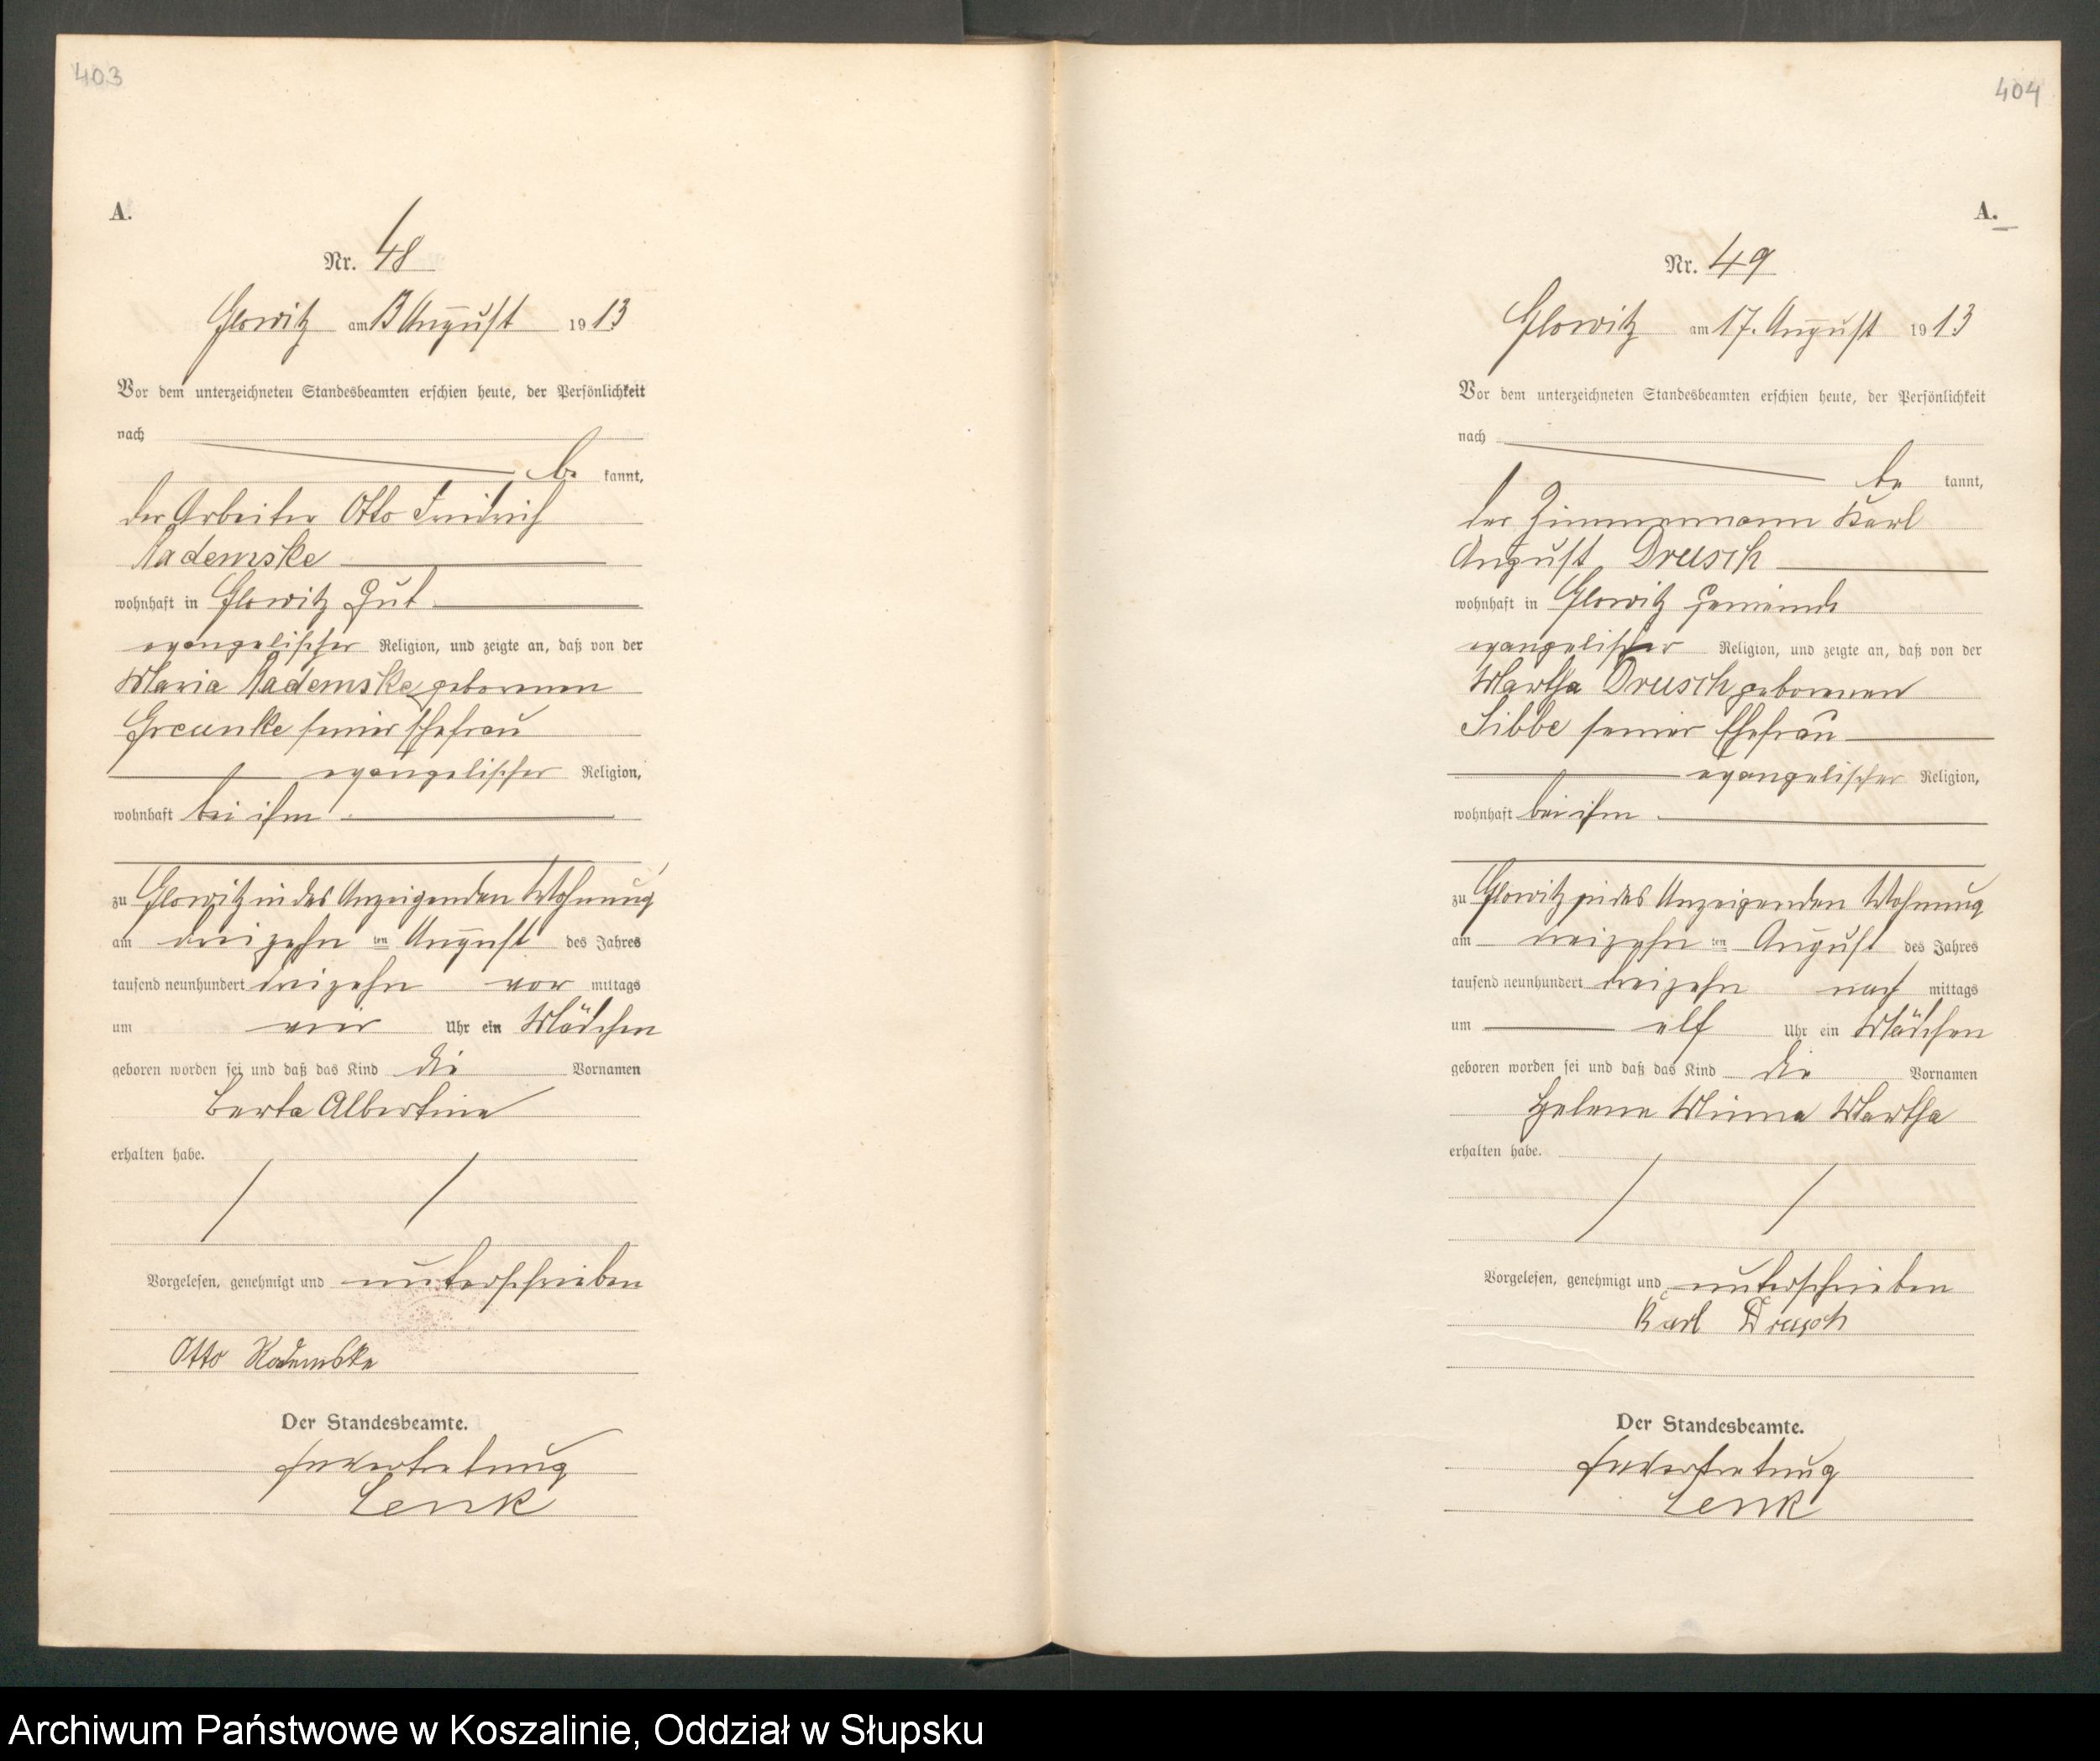 403
A.
Nr. 48
Glowitz am 13 August 1913
Vor dem unterzeichneten Standesbeamten erschien heute, der Persönlichkeit
nach
be kannt,
der Arbeiter Otto Friedrich
Rademske
wohnhaft in Glowitz Gut
evangelischer Religion, und zeigte an, daß von der
Maria Rademske geborenen
Greunke seiner Ehefrau
evangelischer Religion,
wohnhaft bei ihm
zu Glowitz in des Anzeigenden Wohnung
am dreizehn ten August des Jahres
tausend neunhundert dreizehn vor mittags
um vier Uhr ein Mädchen
geboren worden sei und daß das Kind die Vornamen
Berta Albertine
erhalten habe.
Vorgelesen, genehmigt und unterschrieben
Otto Rademske
Der Standesbeamte.
In Vertretung
Lenk
404
A.
Nr. 49
Glowitz am 17. August 1913
Vor dem unterzeichneten Standesbeamten erschien heute, der Persönlichkeit
nach
be kannt,
der Zimmermann Karl
August Drusch
wohnhaft in Glowitz Gemeinde
evangelischer Religion, und zeigte an, daß von der
Martha Drusch geborenen
Sibbe seiner Ehefrau
evangelischer Religion,
wohnhaft bei ihm
zu Glowitz in des Anzeigenden Wohnung
am dreizehn ten August des Jahres
tausend neunhundert dreizehn nach mittags
um elf Uhr ein Mädchen
geboren worden sei und daß das Kind die Vornamen
Helene Minna Martha
erhalten habe.
Vorgelesen, genehmigt und unterschrieben
Karl Drusch
Der Standesbeamte.
In Vertretung
Lenk
Archiwum Państwowe w Koszalinie, Oddział w Słupsku